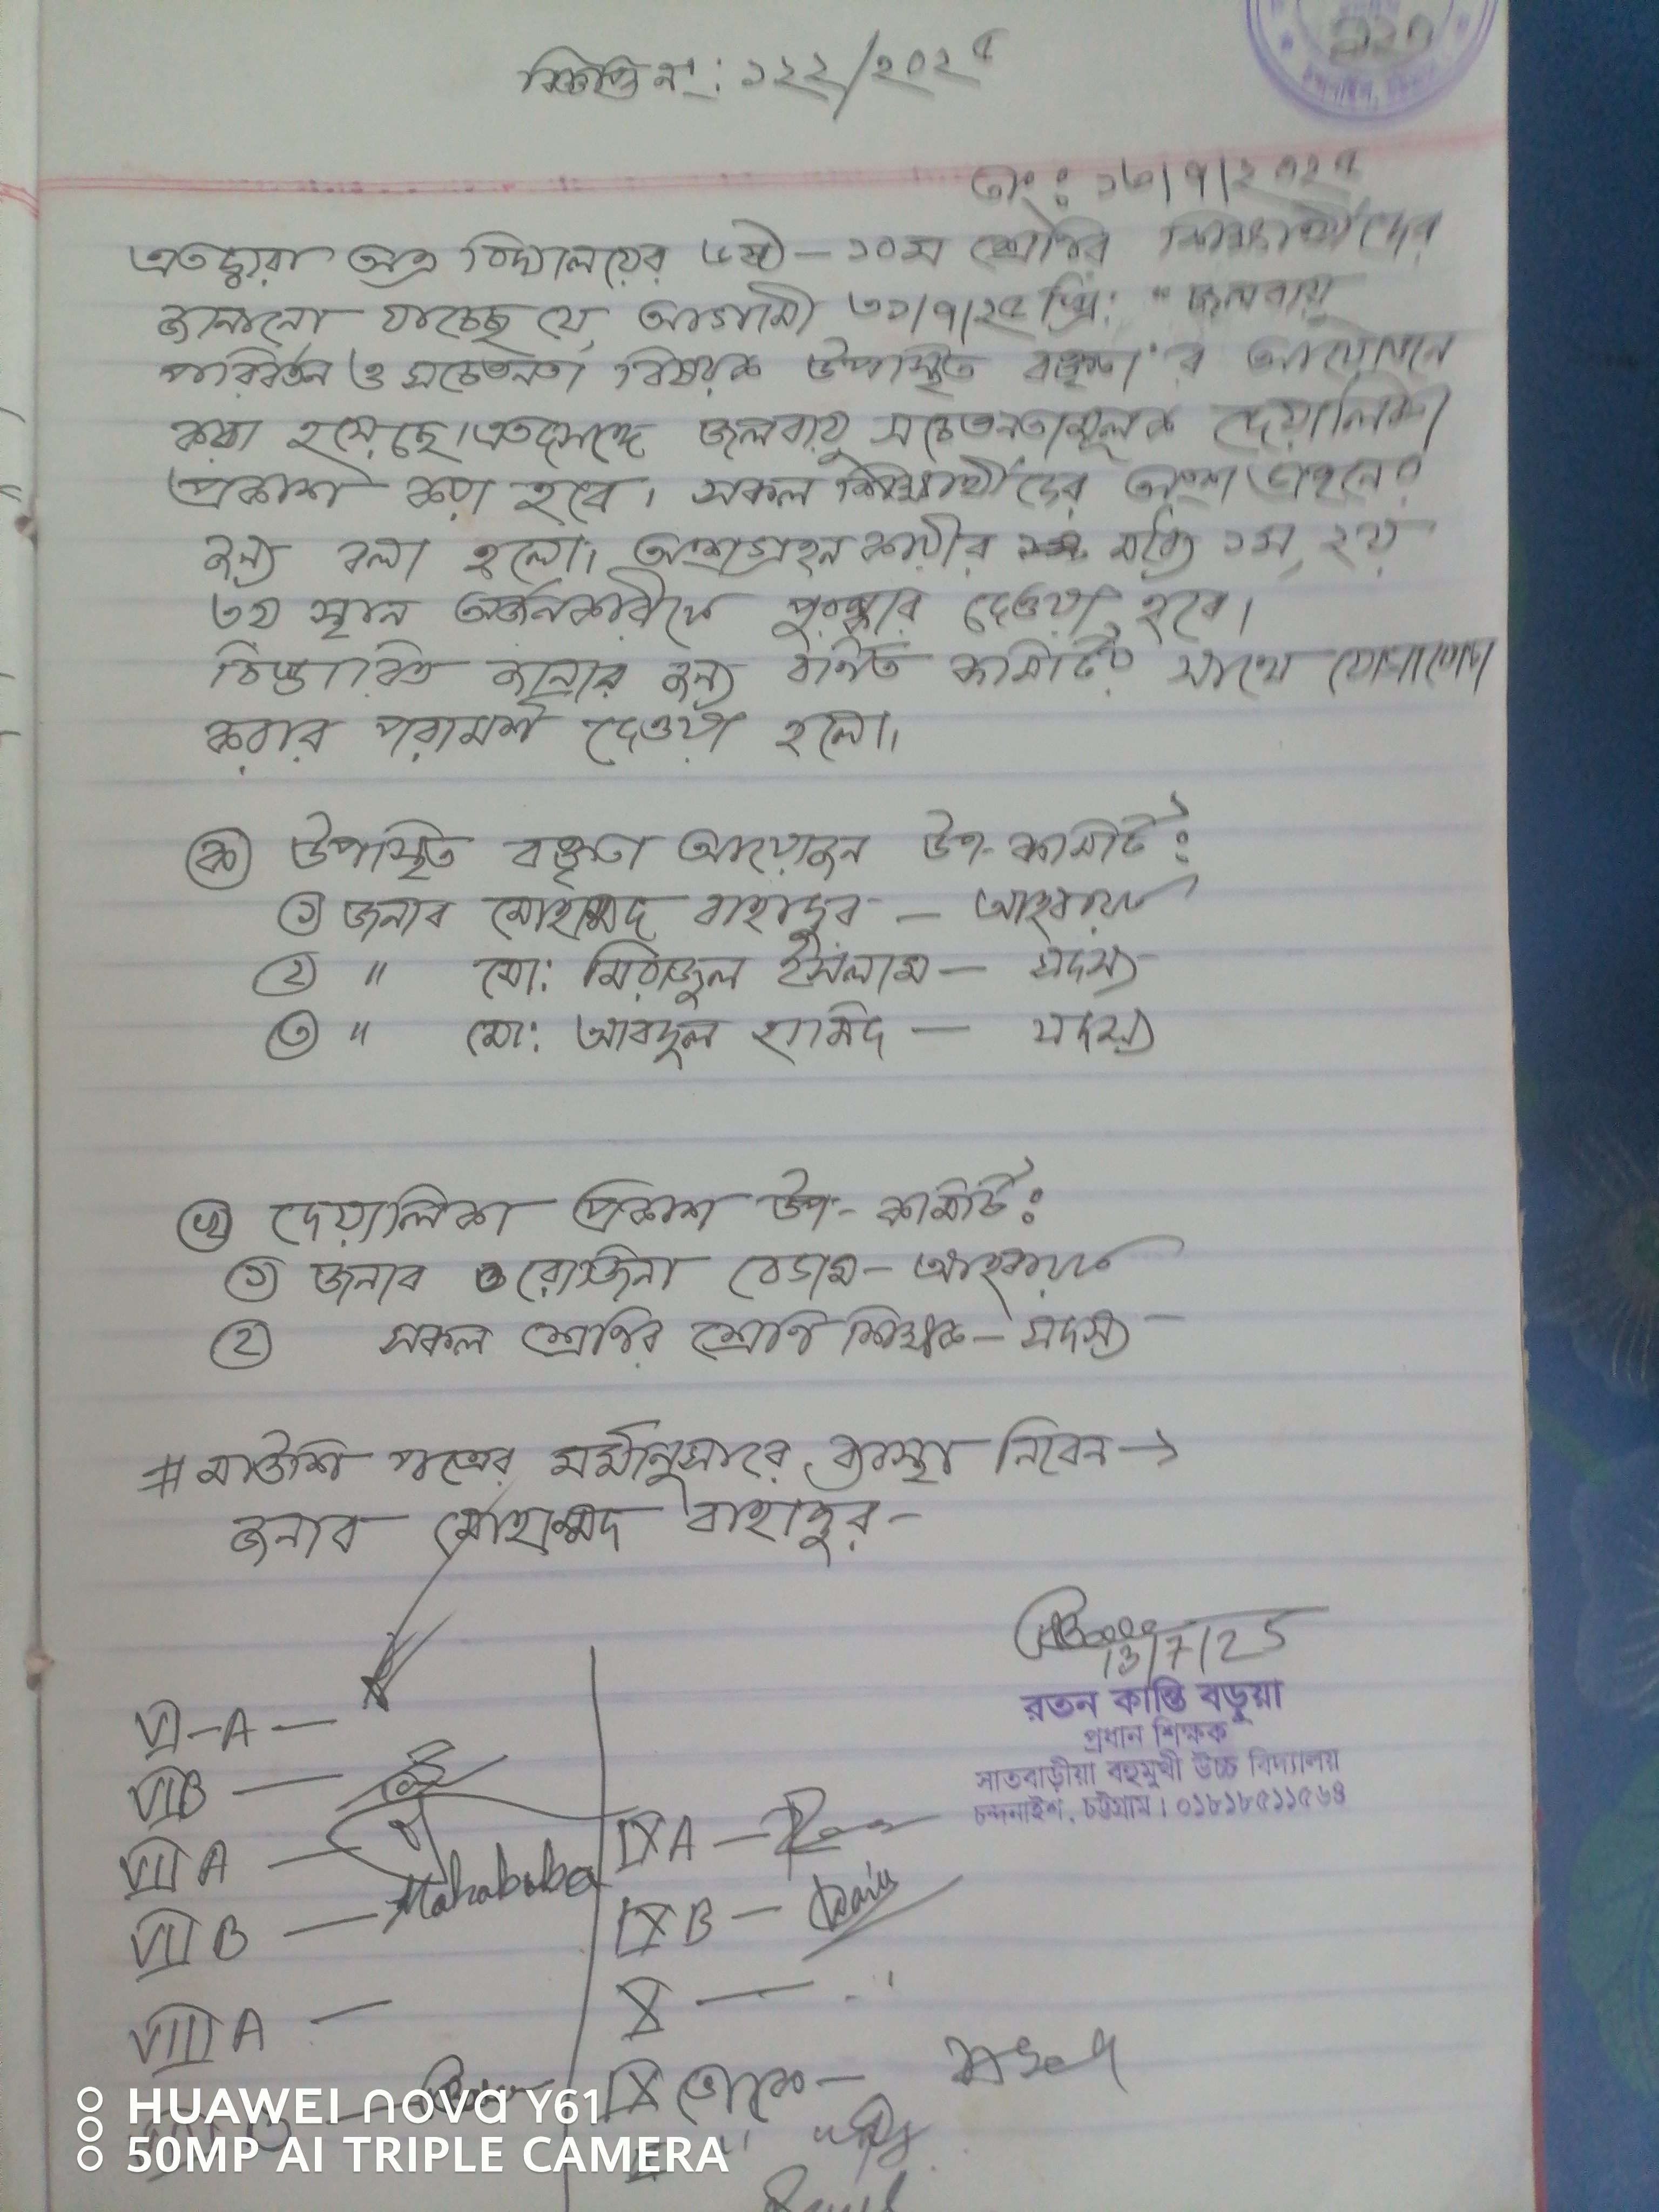 বিজ্ঞপ্তি নং: ১২২/২০২৫
তাং: ১৩/৭/২০২৫
এতদ্বারা অত্র বিদ্যালয়ের ৬ষ্ঠ – ১০ম শ্রেণির শিক্ষার্থীদের
জানানো যাচ্ছে যে, আগামী ৩১/৭/২৫ খ্রি: "জলবায়ু
পরিবর্তন ও সচেতনতা বিষয়ক উপস্থিত বক্তৃতা"র আয়োজন
করা হয়েছে। এতদসঙ্গে জলবায়ু সচেতনতামূলক দেয়ালিকা
প্রকাশ করা হবে। সকল শিক্ষার্থীদের অংশ গ্রহনের
জন্য বলা হলো। অংশগ্রহন কারীর মধ্যে ১ম, ২য়
৩য় স্থান অর্জনকারীকে পুরস্কার দেওয়া হবে।
বিস্তারিত জানার জন্য বর্ণিত কমিটির সাথে যোগাযোগ
করার পরামর্শ দেওয়া হলো।
ক উপস্থিত বক্তৃতা আয়োজন উপ-কমিটি:
১ জনাব মোহাম্মদ বাহাদুর – আহবায়ক
২ " মো: মিরাজুল ইসলাম – সদস্য
৩ " মো: আবদুল হামিদ – সদস্য
খ দেয়ালিকা প্রকাশ উপ-কমিটি:
১ জনাব রোজিনা বেগম – আহবায়ক
২ সকল শ্রেণির শ্রেণি শিক্ষক – সদস্য
# মাউশি পত্রের মর্মানুসারে ব্যবস্থা নিবেন →
জনাব মোহাম্মদ বাহাদুর –
13/7/25
রতন কান্তি বড়ুয়া
প্রধান শিক্ষক
সাতবাড়ীয়া বহুমুখী উচ্চ বিদ্যালয়
চন্দনাইশ, চট্টগ্রাম। ০১৮১৮৫১১৫৬৪
VI-A –
VI B –
VII A –
VII B – Mahabuba
VIII A –
IX A –
IX B –
X –
IX ভোকে –
HUAWEI nova Y61
50MP AI TRIPLE CAMERA